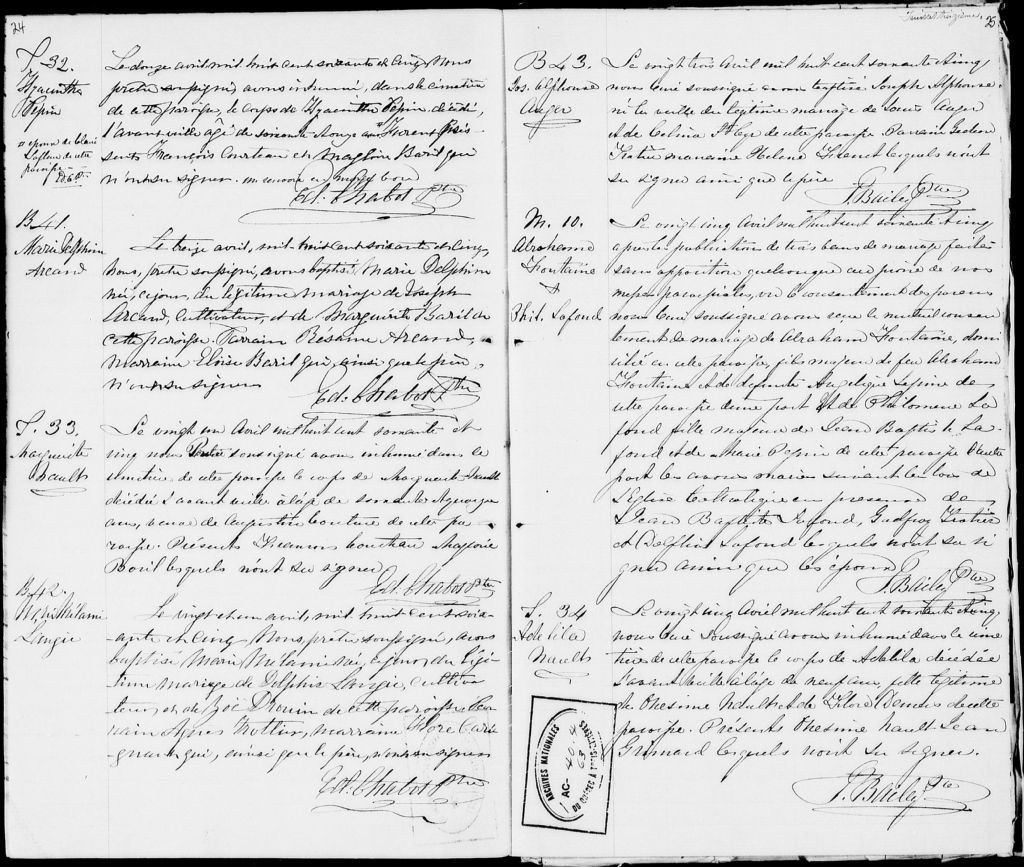 24
S. 32.
Hyacinthe
Pepin
époux de
de cette
paroisse
Le douze avril, mil huit cent soixante et cinq, Nous
prêtre soussigné, avons inhumé, dans le cimetière
de cette paroisse, le corps de Hyacinthe Pepin, décédé,
l'avant veille agé de soixante douze ans. Furent pré-
sents François Courteau et Magloire Baril qui
n'ont su signer.
Ed. Chabot Ptre
B 41.
Marie Delphine
Arcand
Le treize avril, mil huit cent soixante et cinq,
Nous, prêtre soussigné, avons baptisé Marie Delphine
née, ce jour, du légitime mariage de Joseph
Arcand, Cultivateur, et de Marguerite Baril de
cette paroisse. Parrain Arcand,
marraine Eloïse Baril qui, ainsi que le père,
n'ont su signer
Ed. Chabot Ptre
S. 33.
Marguerite
Rault
Le vingt un Avril mil huit cent soixante et
cinq nous Prêtre soussigné avons inhumé dans le
cimetière de cette paroisse le corps de Marguerite
décédée l'avant veille à l'âge de soixante
ans, veuve de Augustin Couture de cette pa-
roisse. Présents François Courteau Magloire
Baril lesquels n'ont su signer
Ed. Chabot Ptre
B 42.
Marie Mélanie
Langie
Le vingt et un avril, mil huit cent soix-
ante et cinq, Nous, prêtre soussigné, avons
baptisé Marie Mélanie née, ce jour, du légi-
time mariage de Delphis Langie, cultiva-
teur, et de Zoé Drouin de cette paroisse. Par-
rain Agnès Trottier, marraine Flore Cari-
gnan qui, ainsi que le père, n'ont su signer
Ed. Chabot Ptre
25
B 43.
Jos. Alphonse
Auger
Le vingt trois Avril mil huit cent soixante & cinq
nous Curé soussigné avons baptisé Joseph Alphonse
né la veille du légitime mariage de Louis Auger
& de Celina de cette paroisse Parrain
marraine Helene lesquels n'ont
su signer ainsi que le père
J. Bailey Ptre
M. 10.
Abraham
Fontaine
&
Phil. Lafond
Le vingt cinq Avril mil huit cent soixante & cinq
après la publication de trois bans de mariage faite
sans opposition quelconque au prône de nos
messes paroissiales, vu le consentement des parens
nous Curé soussigné avons reçu le mutuel consen-
tement de mariage de Abraham Fontaine, domi-
cilié en cette paroisse, fils majeur de feu Abraham
Fontaine & de défunte Angelique Lepine de
cette paroisse d'une part & de Philomene La-
fond fille majeure de Jean Baptiste La-
fond et de Marie Pepin de cette paroisse d'autre
part les avons mariés suivant les lois de
l'Eglise Catholique en presence de
Jean Baptiste Lafond, Godfroy
et Delphin Lafond lesquels n'ont su si-
gner ainsi que les époux
J. Bailey Ptre
S. 34
Adelila
Nault
Le vingt cinq Avril mil huit cent soixante & cinq
nous Curé Soussigné avons inhumé dans le cime-
tière de cette paroisse le corps de Adelila décédée
l'avant veille à l'âge de neuf ans, fille légitime
de Onesime Nault & de Flore de cette
paroisse. Présents Onesime Nault Jean
Grimard lesquels n'ont su signer.
J. Bailey Ptre
ARCHIVES NATIONALES
AC-40-4
63
DU QUÉBEC À TROIS-RIVIÈRES